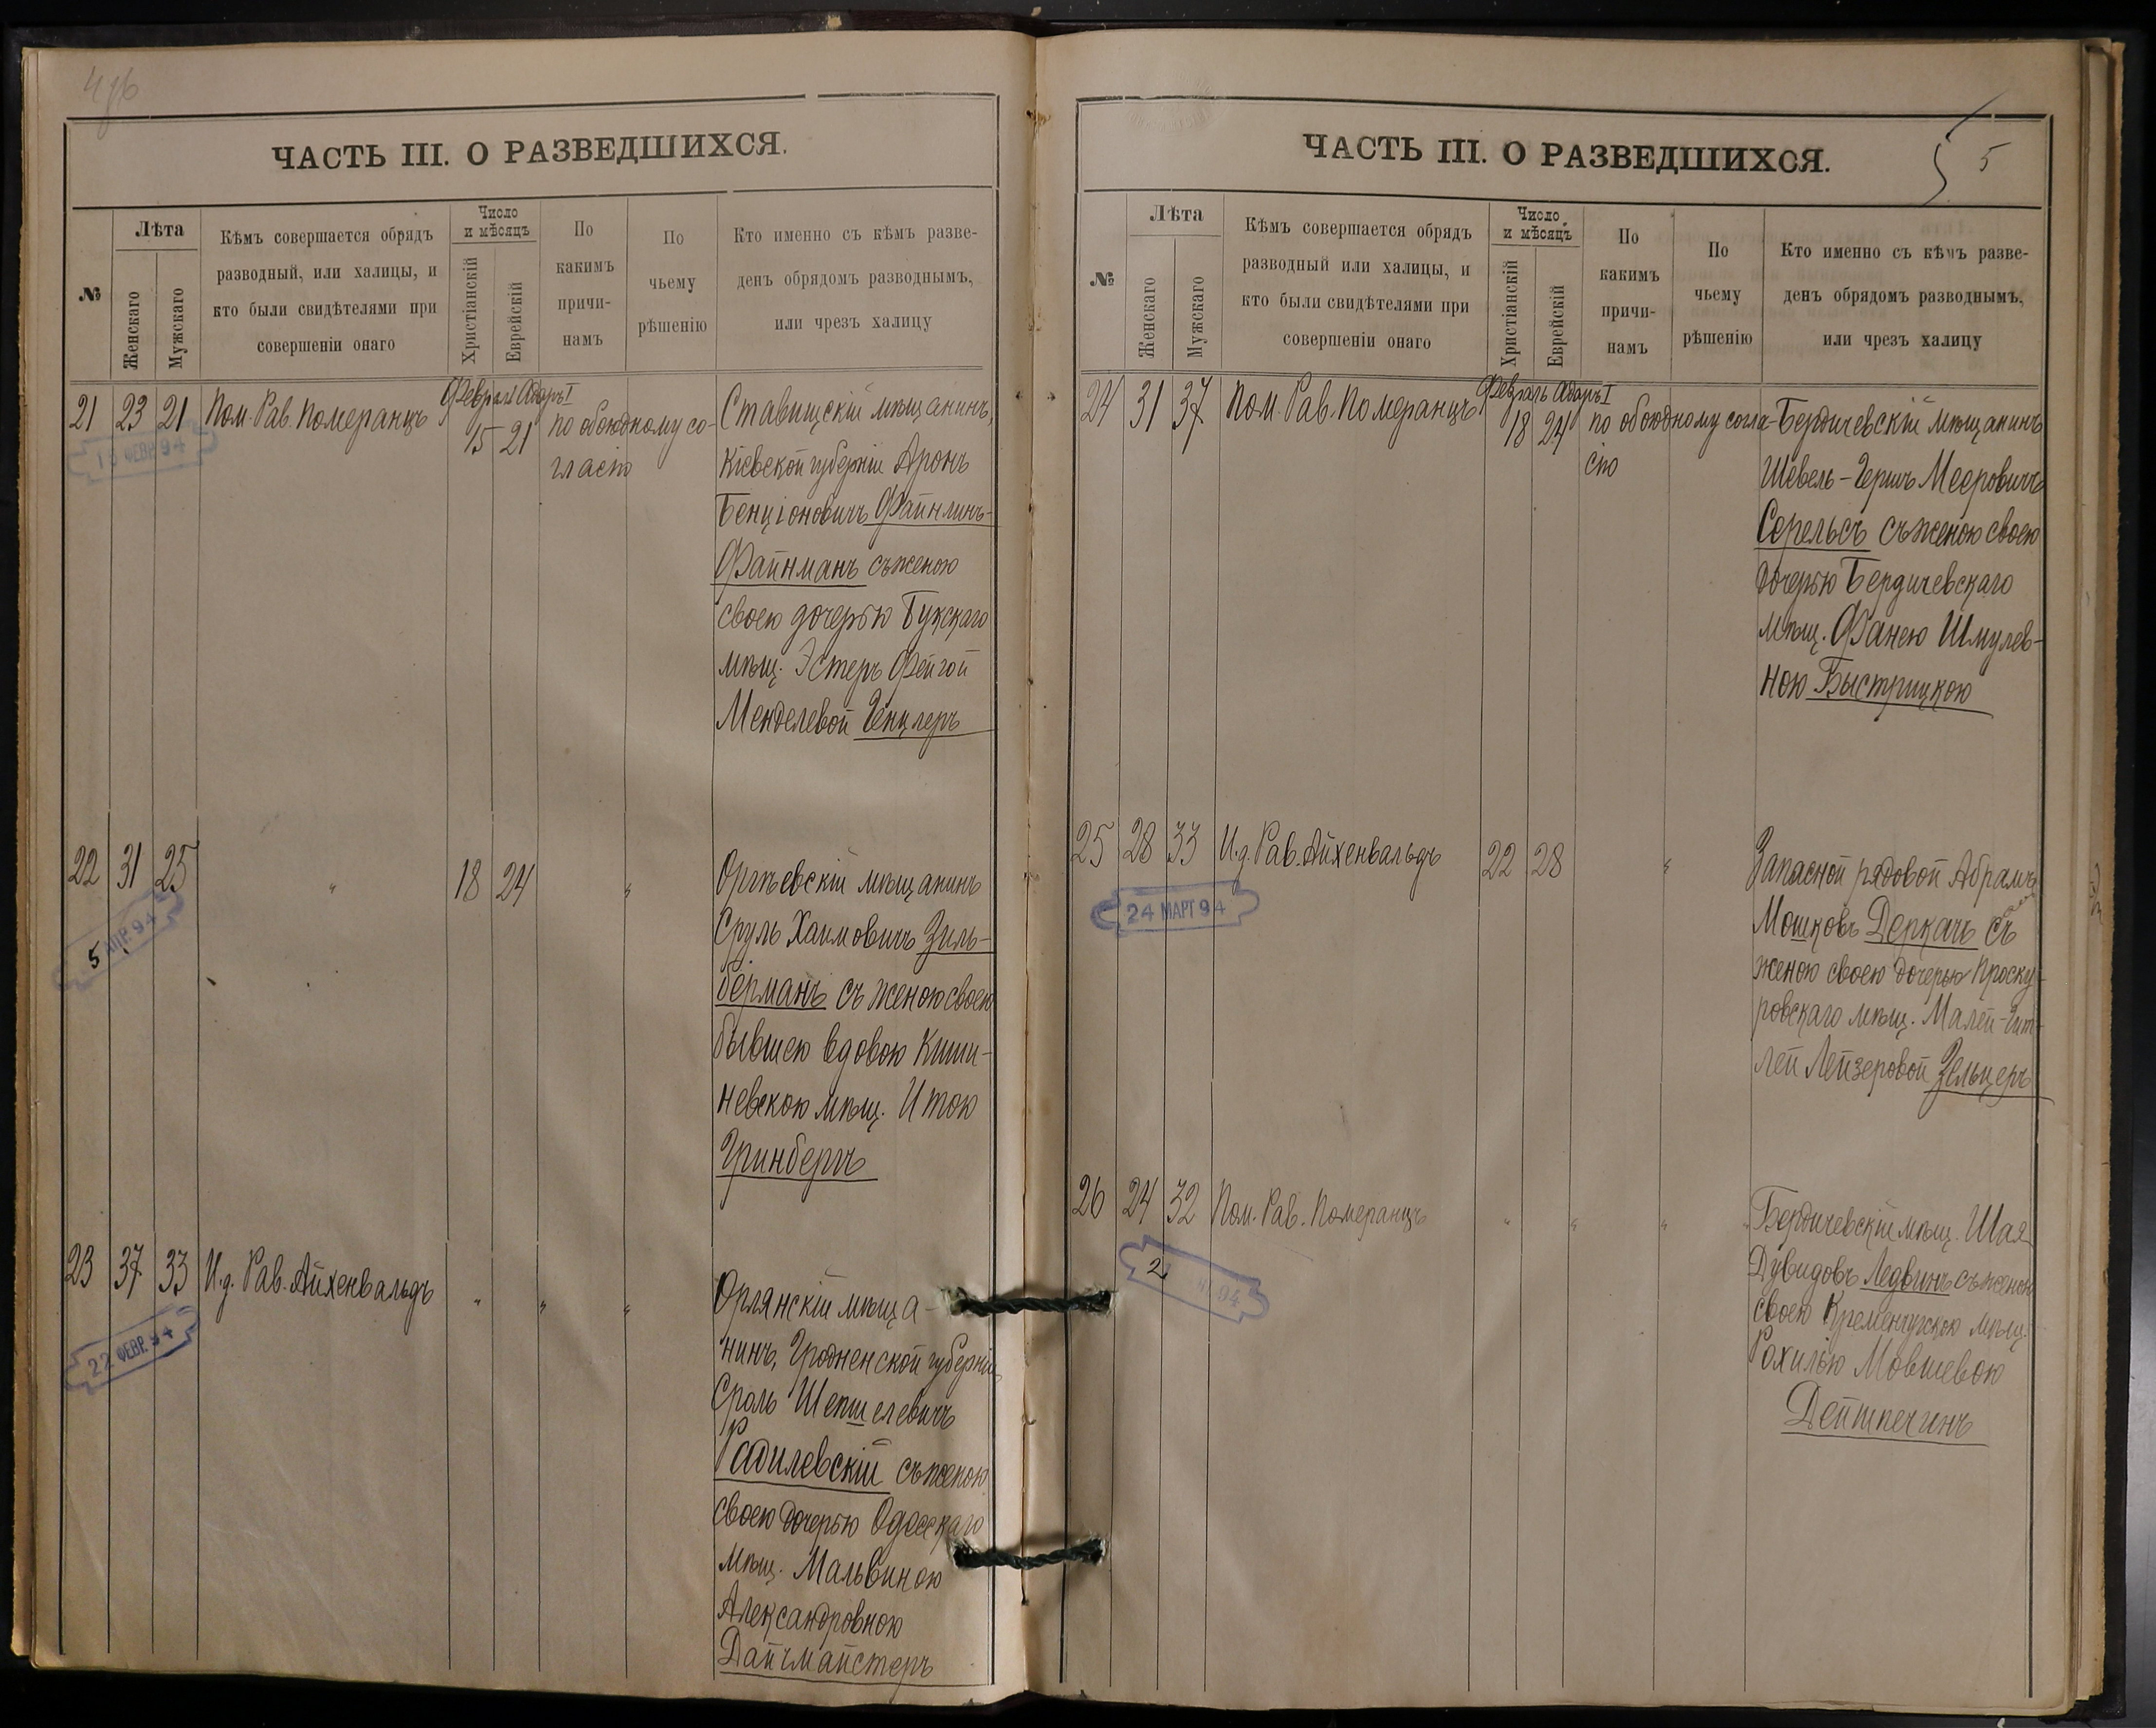 4 об
ЧАСТЬ III. О РАЗВЕДШИХСЯ.
№
Лѣта
Женскаго
Мужскаго
Кѣмъ совершается обрядъ
разводный, или халицы, и
кто были свидѣтелями при
совершеніи онаго
Число
и мѣсяцъ
Христіанскій
Еврейскій
По
какимъ
причи-
намъ
По
чьему
рѣшенію
Кто именно съ кѣмъ разве-
денъ обрядомъ разводнымъ,
или чрезъ халицу
21 23 21 Пом. Рав. Померанцъ
Февраль Адаръ I
15 21
по обоюдному со-
гласію
Ставищскій мѣщанинъ,
Кіевской губерніи Аронъ
Бенціоновичъ Файнлинъ-
Файнманъ съ женою
своею дочерью Букскаго
мѣщ. Эстеръ Фейгой
Менделевой Генцлеръ
ФЕВР 94
22 31 25 " 18 24 "
Оргѣевскій мѣщанинъ
Сруль Хаимовичъ Зиль-
берманъ съ женою своею
бывшею вдовою Киши-
невскою мѣщ. Итою
Гринбергъ
5 АПР. 94
23 37 33 И.д. Рав. Айхенвальдъ " " "
Орлянскій мѣща-
нинъ, Гродненской губерніи
Сроль Шепшелевичъ
Радилевскій съ женою
своею дочерью Одесскаго
мѣщ. Мальвиною
Александровною
Дайчмайстеръ
22 ФЕВР. 94
5
ЧАСТЬ III. О РАЗВЕДШИХСЯ.
№
Лѣта
Женскаго
Мужскаго
Кѣмъ совершается обрядъ
разводный или халицы, и
кто были свидѣтелями при
совершеніи онаго
Число
и мѣсяцъ
Христіанскій
Еврейскій
По
какимъ
причи-
намъ
По
чьему
рѣшенію
Кто именно съ кѣмъ разве-
денъ обрядомъ разводнымъ,
или чрезъ халицу
24 31 37 Пом. Рав. Померанцъ
Февраль Адаръ I
18 24
по обоюдному согла-
сію
Бердичевскій мѣщанинъ
Шевель-Гершъ Мееровичъ
Серельсъ съ женою своею
дочерью Бердичевскаго
мѣщ. Фанею Шмулев-
ною Быстрицкою
25 28 33 И.д. Рав. Айхенвальдъ 22 28 "
Запасной рядовой Абрамъ
Мошковъ Деркачъ съ
женою своею дочерью Проску-
ровскаго мѣщ. Малей-Гит-
лей Лейзеровой Зельцеръ
24 МАРТ 94
26 24 32 Пом. Рав. Померанцъ " " " "
Бердичевскій мѣщ. Шая
Дувидовъ Ледвинъ съ женою
своею Кременчужскою мѣщ.
Рохилью Мовшевою
Дейтпечинъ
2 94